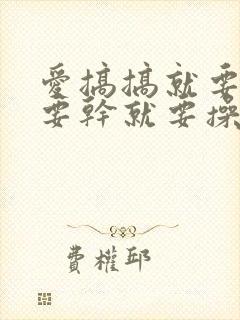 愛搞搞就要
要幹就要操
費權邱